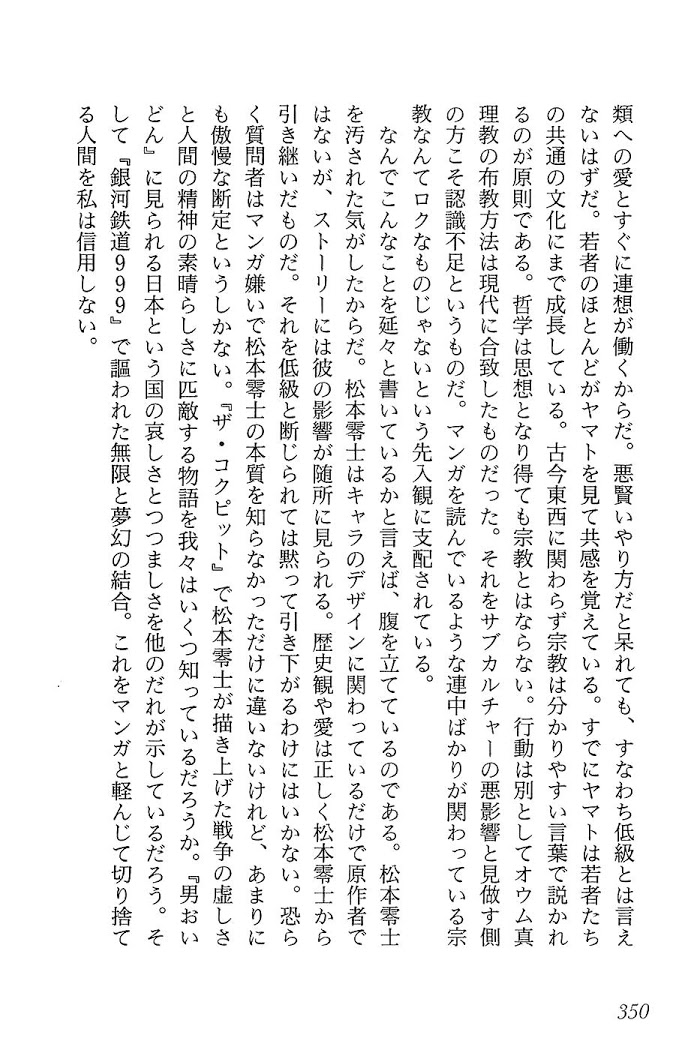 類への愛とすぐに連想が働くからだ。悪賢いやり方だと呆れても、すなわち低級とは言え
ないはずだ。若者のほとんどがヤマトを見て共感を覚えている。すでにヤマトは若者たち
の共通の文化にまで成長している。古今東西に関わらず宗教は分かりやすい言葉で説かれ
るのが原則である。哲学は思想となり得ても宗教とはならない。行動は別としてオウム真
理教の布教方法は現代に合致したものだった。それをサブカルチャーの悪影響と見做す側
の方こそ認識不足というものだ。マンガを読んでいるような連中ばかりが関わっている宗
教なんてロクなものじゃないという先入観に支配されている。
なんでこんなことを延々と書いているかと言えば、腹を立てているのである。松本零士
を汚された気がしたからだ。松本零士はキャラのデザインに関わっているだけで原作者で
はないが、ストーリーには彼の影響が随所に見られる。歴史観や愛は正しく松本零士から
引き継いだものだ。それを低級と断じられては黙って引き下がるわけにはいかない。恐ら
く質問者はマンガ嫌いで松本零士の本質を知らなかっただけに違いないけれど、あまりに
も傲慢な断定というしかない。『ザ・コクピット』で松本零士が描き上げた戦争の虚しさ
と人間の精神の素晴らしさに匹敵する物語を我々はいくつ知っているだろうか。『男おい
どん』に見られる日本という国の哀しさとつつましさを他のだれが示しているだろう。そ
して『銀河鉄道９９９』で謳われた無限と夢幻の結合。これをマンガと軽んじて切り捨て
る人間を私は信用しない。
350